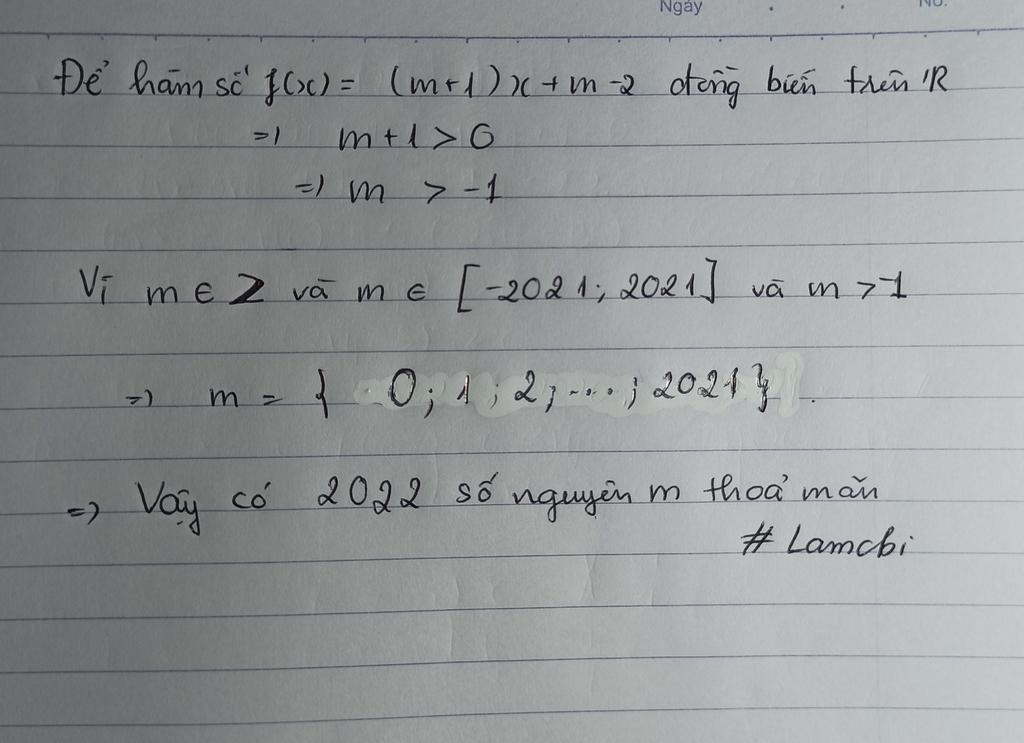 Ngày No.
Để hàm số f(x) = (m+1)x + m -2 đồng biến trên R
=> m + 1 > 0
=> m > -1
Vì m ∈ Z và m ∈ [-2021; 2021] và m > -1
=> m = { 0; 1; 2; ...; 2021}.
=> Vậy có 2022 số nguyên m thoả mãn
# Lamcbi